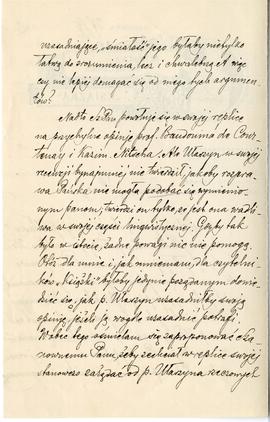 uzasadniające, "śmiałość" jego byłaby nietylko
łatwą do zrozumienia, lecz i chwalebną. A więc
czy nie lepiej domagać się od niego tych argumen-
tów?
Nadto Sz Pan powołuje się w swojej replice
na przychylne opinje prof. Baudouina de Cour-
tenay i Kazim. Nitscha. Ale Ułaszyn w swojej
recenzji bynajmniej nie twierdził, jakoby rozpra-
wa Pańska nie mogła podobać się wymienio-
nym panom, twierdzi on tylko, że jest ona wadli-
wa w swojej części lingwistycznej. Gdyby tak
było w istocie, żadne powagi nic nie pomogą.
Otóż dla mnie i, jak mniemam, dla czytelni-
ków "Książki" byłoby jedynie pożądanym dowie-
dzieć się, jak p. Ułaszyn uzasadniłby swoją
opinję, jeżeli ją wogóle uzasadnić potrafi.
Wobec tego ośmielam się zaproponować Sza-
nownemu Panu, żeby zechciał w replice swojej
stanowczo zażądać od p. Ułaszyna rzeczowych